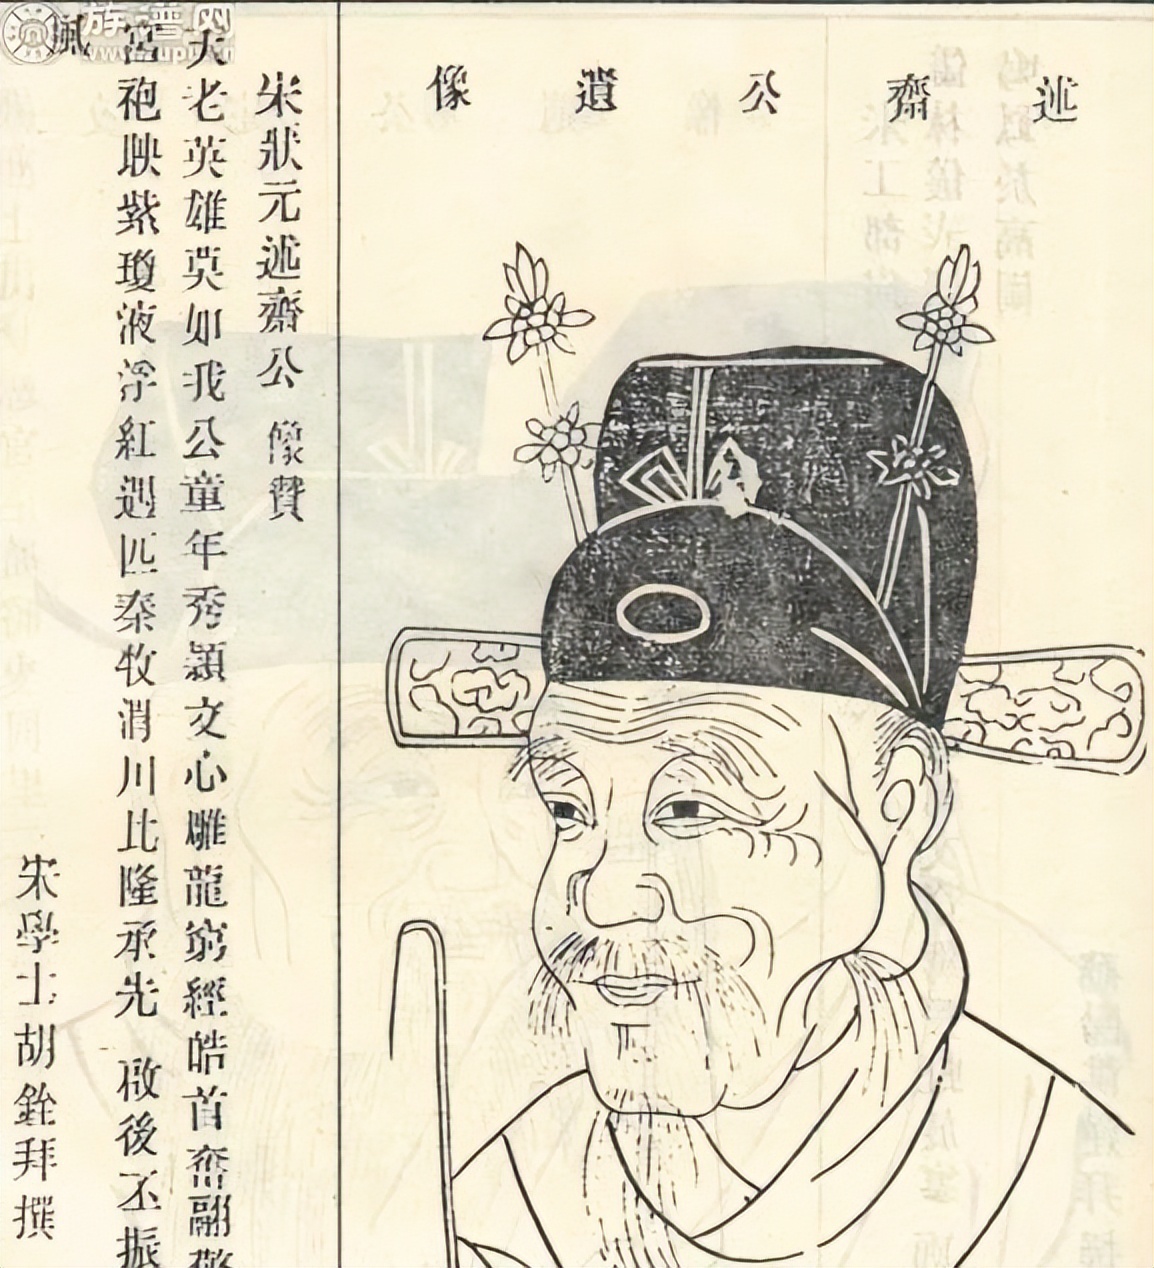 述齋公遺像
宋狀元述齋公像贊
大老英雄莫如我公童年秀穎文心雕龍窮經皓首奮翮
宮袍映紫瓊液浮紅遇匹秦牧渭川比隆承先啟後丕振
風
宋學士胡銓拜撰
族谱网